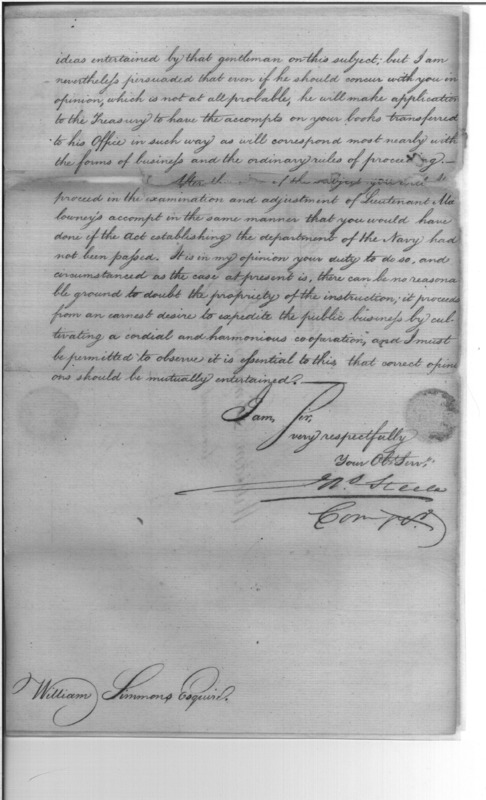 ideas entertained by that gentleman on this subject; but I am
nevertheless persuaded that even if he should concur with you in
opinion, which is not at all probable, he will make application
to the Treasury to have the accompts on your books transferred
to his Office in such way as will correspond most nearly with
the forms of business and the ordinary rules of proceeding.—
of the subject you will
proceed in the examination and adjustment of Lieutenant Ma
lowney's accompt in the same manner that you would have
done if the Act establishing the department of the Navy had
not been passed. It is in my opinion your duty to do so, and
circumstanced as the case at present is, there can be no reasona
ble ground to doubt the propriety of the instruction; it proceeds
from an earnest desire to expedite the public business by cul
tivating a cordial and harmonious cooperation, and I must
be permitted to observe it is essential to this that correct opini
ons should be mutually entertained.
I am, Sir,
very respectfully
Your Obt. Servt.
Jno. Steele
Comptr.
William Simmons Esquire.